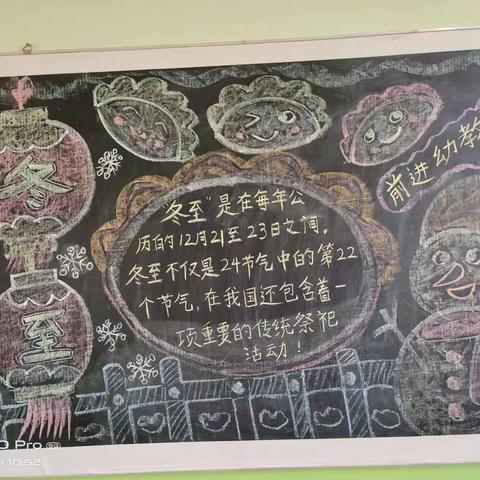 冬
至
"冬至"是在每年公
历的12月21至23日之间。
冬至不仅是24节气中的第22
个节气，在我国还包含着一
项重要的传统祭祀
活动！
前进幼教
Pro 5G
10:52